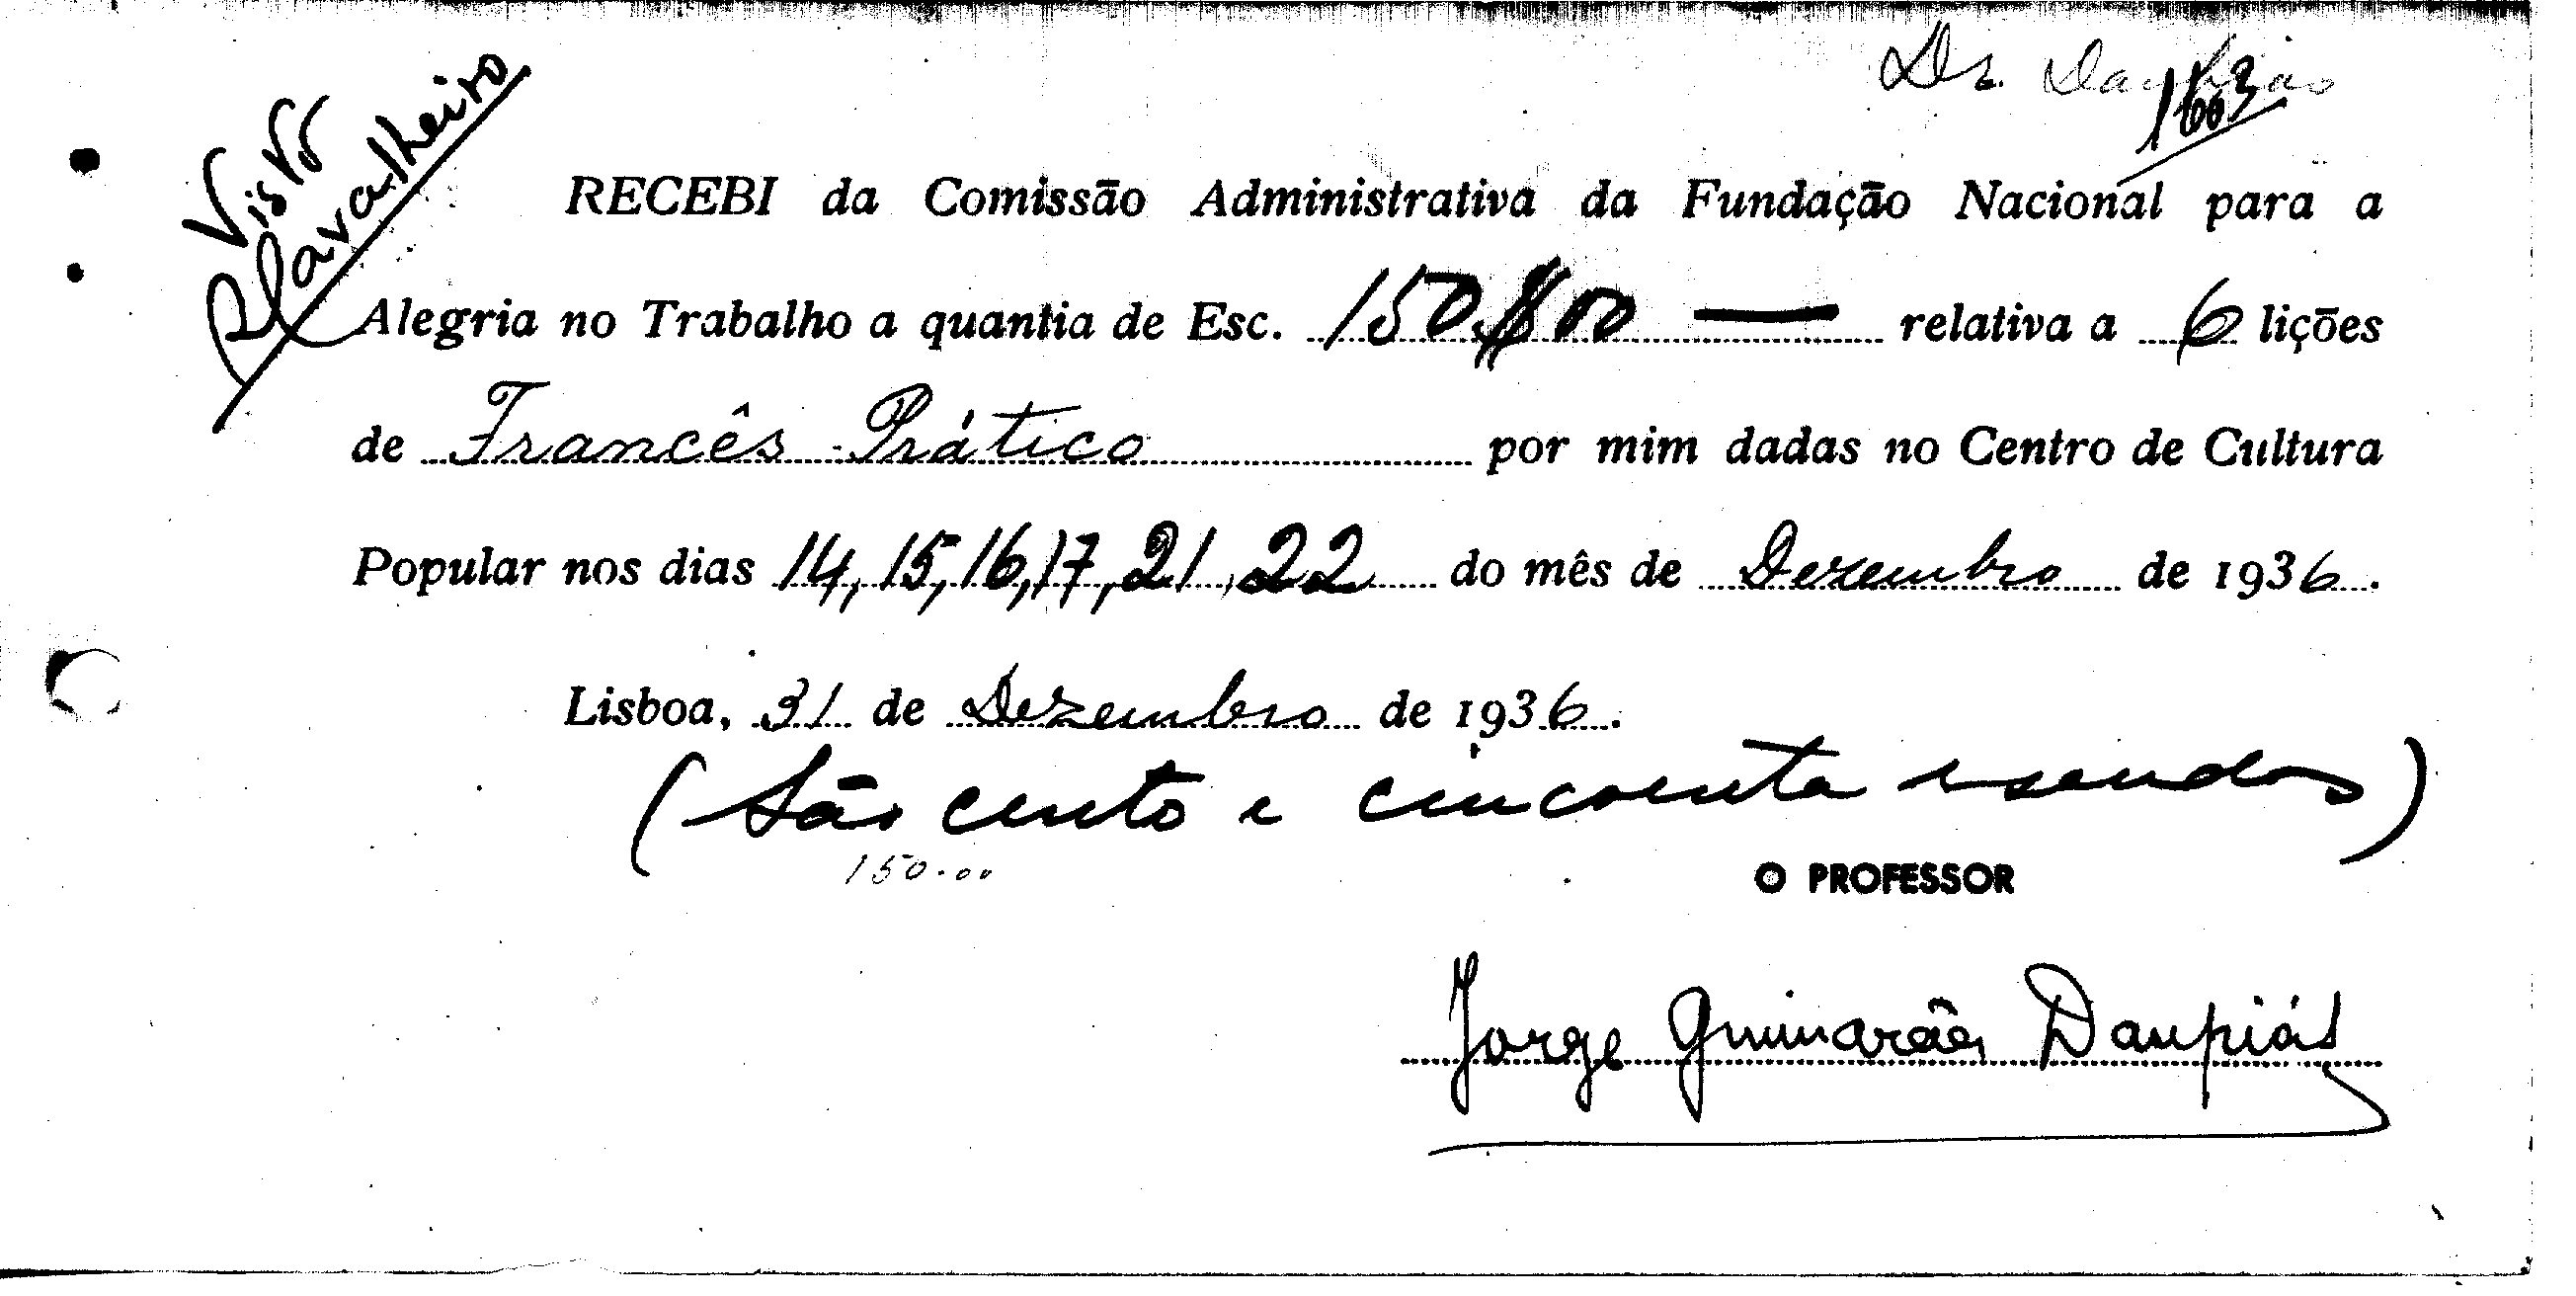 Dr. Daupiás
1663
Visto
Cavalheiro
RECEBI da Comissão Administrativa da Fundação Nacional para a
Alegria no Trabalho a quantia de Esc. 150$00 — relativa a 6 lições
de Francês Prático por mim dadas no Centro de Cultura
Popular nos dias 14, 15, 16, 17, 21, 22 do mês de Dezembro de 1936.
Lisboa, 31 de Dezembro de 1936.
(São cento e cincoenta escudos)
150.00
O PROFESSOR
Jorge Guimarães Daupiás